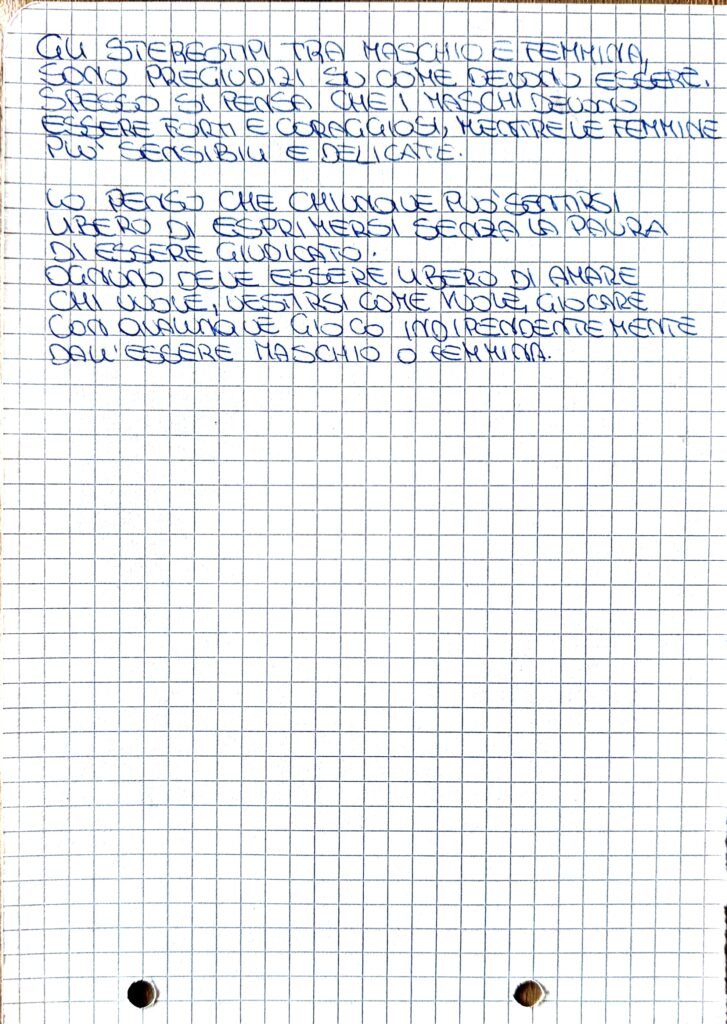 GLI STEREOTIPI TRA MASCHIO E FEMMINA,
SONO PREGIUDIZI SU COME DEVONO ESSERE.
SPESSO SI PENSA CHE I MASCHI DEVONO
ESSERE FORTI E CORAGGIOSI, MENTRE LE FEMMINE
PIU' SENSIBILI E DELICATE.
IO PENSO CHE CHIUNQUE PUO' SENTIRSI
LIBERO DI ESPRIMERSI SENZA LA PAURA
DI ESSERE GIUDICATO.
OGNUNO DEVE ESSERE LIBERO DI AMARE
CHI VUOLE, VESTIRSI COME VUOLE, GIOCARE
CON QUALUNQUE GIOCO INDIPENDENTEMENTE
DALL'ESSERE MASCHIO O FEMMINA.